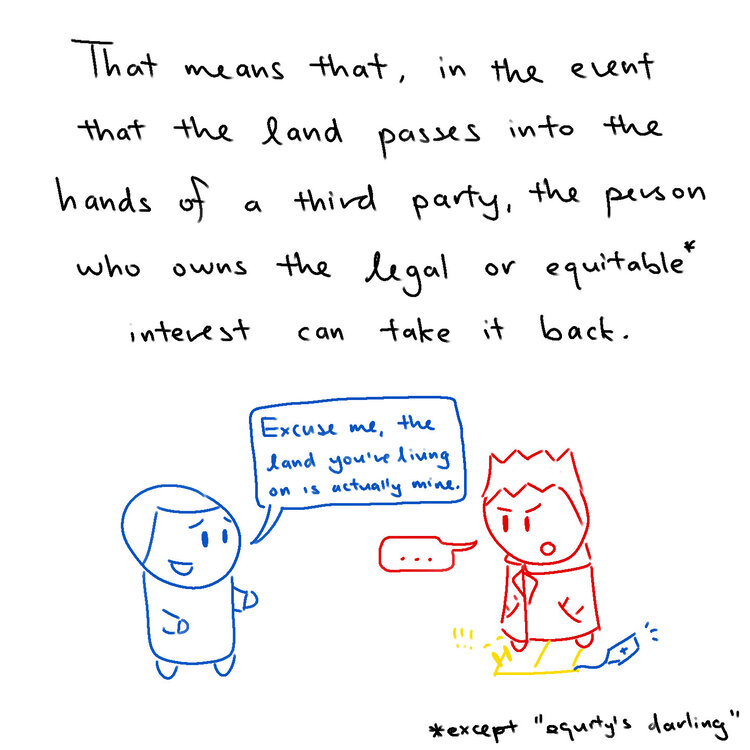 That means that, in the event
that the land passes into the
hands of a third party, the person
who owns the legal or equitable*
interest can take it back.
Excuse me, the
land you've living
on is actually mine.
...
!!!
*except "equrty's darling"